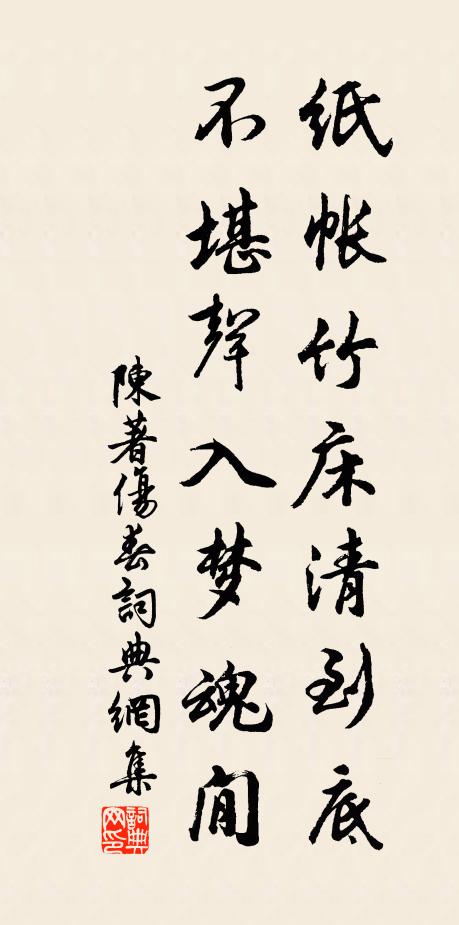 纸帐竹床清到底
不堪聲入梦魂间
陳著傷春詞典網集
詞典网印